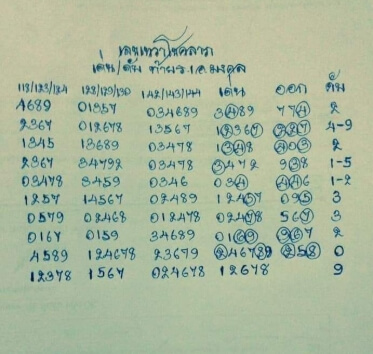 เลขเทวาโชคลาภา
เด่น/ดับ ท้าย ร.๑ มงคล
118/123/124 128/129/130 142/143/144 เด่น ออก ดับ
4689 01357 034689 3489 774 2
2367 012678 13567 12367 327 4-9
1345 13689 03478 1348 403 2
2367 34792 03478 3472 938 1-5
03478 3459 0346 034 446 1-2
1257 14567 02489 12457 095 3
0579 02468 012478 02478 567 3
0167 0159 34689 0169 967 2
4589 124678 23679 246789 258 0
12378 1567 024678 12678 9